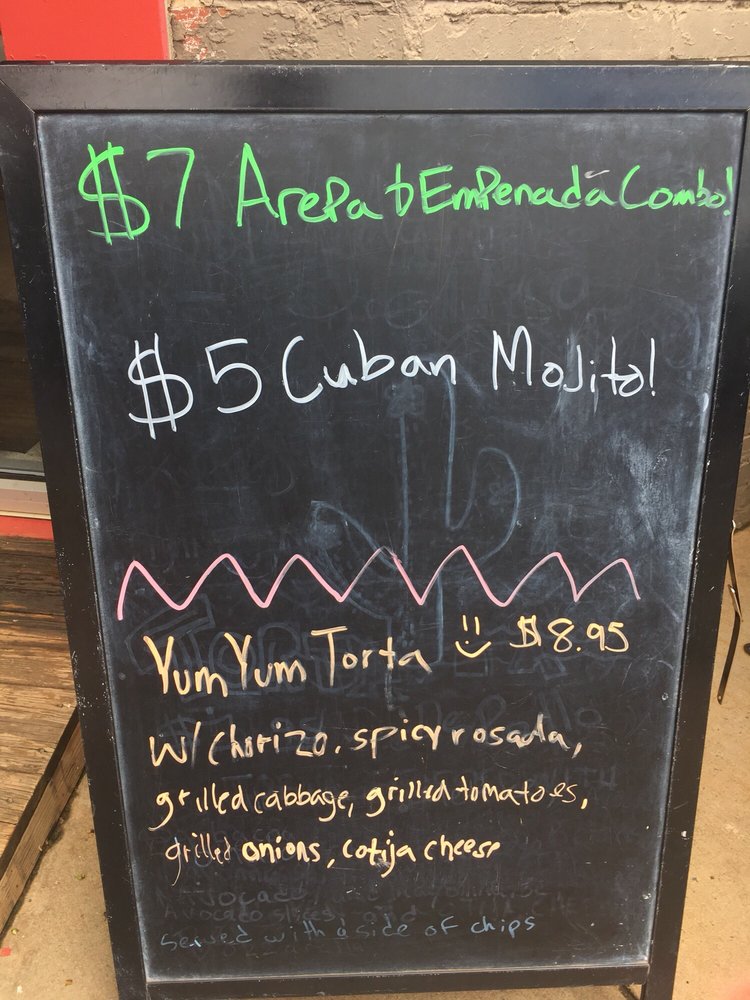 $7 Arepa & Empenada Combo!
$5 Cuban Mojito!
Yum Yum Torta $8.95
w/ chorizo, spicy rosada,
grilled cabbage, grilled tomatoes,
grilled onions, cotija cheese
Avocado
Avocado slices, and
served with a side of chips